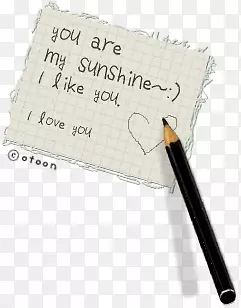 you are
my sunshine~:)
I like you.
I love you
© otoon